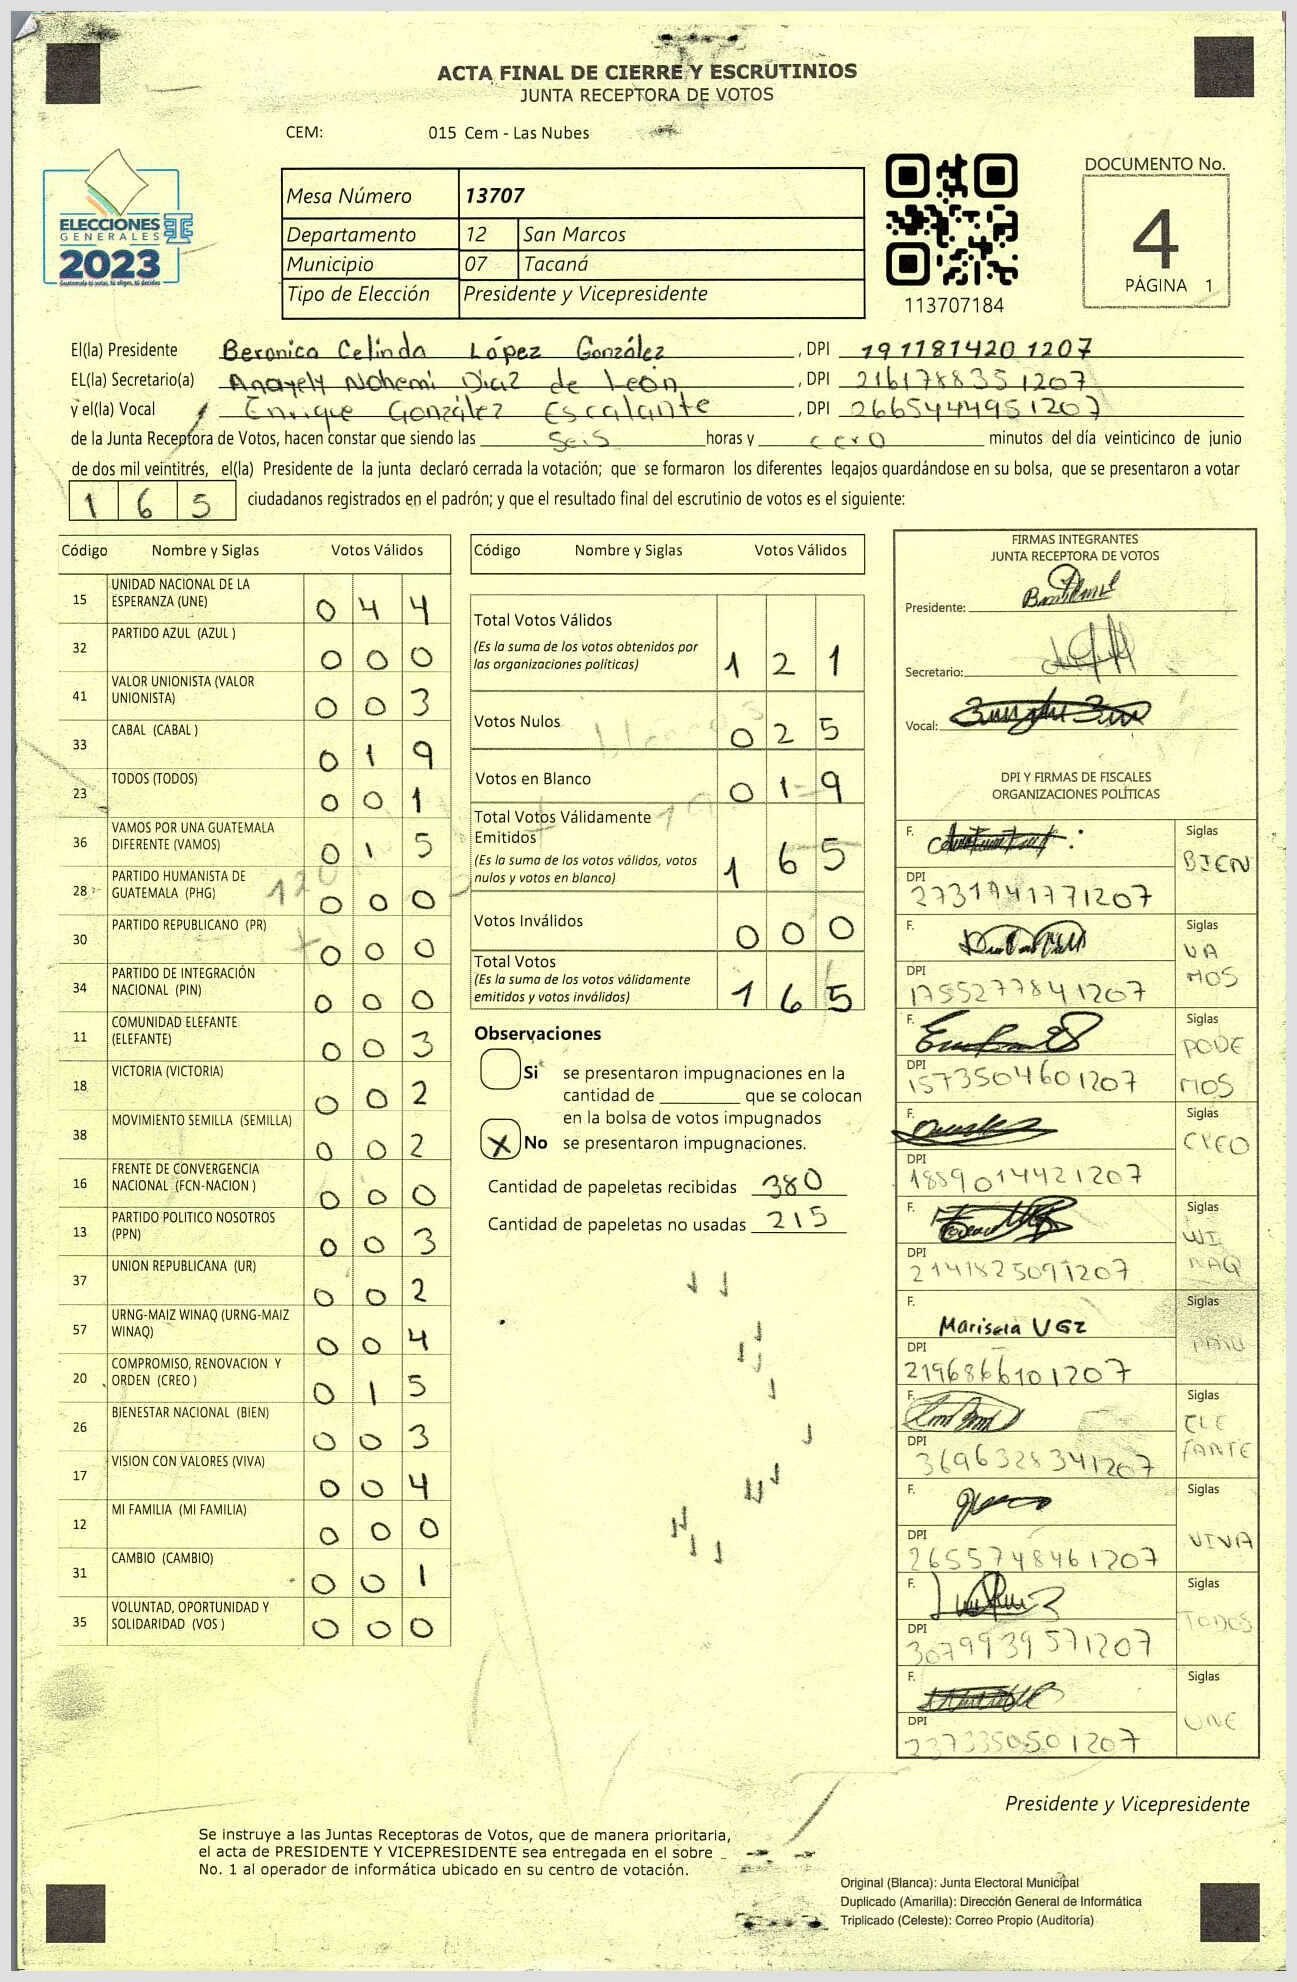 ACTA FINAL DE CIERRE Y ESCRUTINIOS
JUNTA RECEPTORA DE VOTOS
CEM: 015 Cem - Las Nubes
ELECCIONES
GENERALES
2023
Mesa Número 13707
Departamento 12 San Marcos
Municipio 07 Tacaná
Tipo de Elección Presidente y Vicepresidente
113707184
DOCUMENTO No.
4
PÁGINA 1
El(la) Presidente Beronica Celinda López González , DPI 191181420 1207
EL(la) Secretario(a) Anayely Nohemi Diaz de León , DPI 216178835 1207
y el(la) Vocal Enrique González Escalante , DPI 266544495 1207
de la Junta Receptora de Votos, hacen constar que siendo las seis horas y cero minutos del día veinticinco de junio
de dos mil veintitrés, el(la) Presidente de la junta declaró cerrada la votación; que se formaron los diferentes legajos guardándose en su bolsa, que se presentaron a votar
1 6 5 ciudadanos registrados en el padrón; y que el resultado final del escrutinio de votos es el siguiente:
Código Nombre y Siglas Votos Válidos
15 UNIDAD NACIONAL DE LA ESPERANZA (UNE) 0 4 4
32 PARTIDO AZUL (AZUL ) 0 0 0
41 VALOR UNIONISTA (VALOR UNIONISTA) 0 0 3
33 CABAL (CABAL ) 0 1 9
23 TODOS (TODOS) 0 0 1
36 VAMOS POR UNA GUATEMALA DIFERENTE (VAMOS) 0 1 5
28 PARTIDO HUMANISTA DE GUATEMALA (PHG) 0 0 0
30 PARTIDO REPUBLICANO (PR) 0 0 0
34 PARTIDO DE INTEGRACIÓN NACIONAL (PIN) 0 0 0
11 COMUNIDAD ELEFANTE (ELEFANTE) 0 0 3
18 VICTORIA (VICTORIA) 0 0 2
38 MOVIMIENTO SEMILLA (SEMILLA) 0 0 2
16 FRENTE DE CONVERGENCIA NACIONAL (FCN-NACION ) 0 0 0
13 PARTIDO POLITICO NOSOTROS (PPN) 0 0 3
37 UNION REPUBLICANA (UR) 0 0 2
57 URNG-MAIZ WINAQ (URNG-MAIZ WINAQ) 0 0 4
20 COMPROMISO, RENOVACION Y ORDEN (CREO ) 0 1 5
26 BIENESTAR NACIONAL (BIEN) 0 0 3
17 VISION CON VALORES (VIVA) 0 0 4
12 MI FAMILIA (MI FAMILIA) 0 0 0
31 CAMBIO (CAMBIO) 0 0 1
35 VOLUNTAD, OPORTUNIDAD Y SOLIDARIDAD (VOS ) 0 0 0
Código Nombre y Siglas Votos Válidos
Total Votos Válidos
(Es la suma de los votos obtenidos por
las organizaciones políticas) 1 2 1
Votos Nulos 0 2 5
Votos en Blanco 0 1 9
Total Votos Válidamente
Emitidos
(Es la suma de los votos válidos, votos
nulos y votos en blanco) 1 6 5
Votos Inválidos 0 0 0
Total Votos
(Es la suma de los votos válidamente
emitidos y votos inválidos) 1 6 5
Observaciones
Si se presentaron impugnaciones en la
cantidad de ________ que se colocan
en la bolsa de votos impugnados
X No se presentaron impugnaciones.
Cantidad de papeletas recibidas 380
Cantidad de papeletas no usadas 215
FIRMAS INTEGRANTES
JUNTA RECEPTORA DE VOTOS
Presidente:
Secretario:
Vocal:
DPI Y FIRMAS DE FISCALES
ORGANIZACIONES POLÍTICAS
F. Siglas BIEN
DPI 2731941771207
F. Siglas VAMOS
DPI 1755277841207
F. Siglas PODEMOS
DPI 1573504601207
F. Siglas CREO
DPI 1889014421207
F. Siglas WINAQ
DPI 2141825091207
F. Marisela VGz Siglas
DPI 2196866101207
F. Siglas ELEFANTE
DPI 3696328341207
F. Siglas VIVA
DPI 2655748461207
F. Siglas TODOS
DPI 3079939571207
F. Siglas UNE
DPI 2373350501207
Presidente y Vicepresidente
Se instruye a las Juntas Receptoras de Votos, que de manera prioritaria,
el acta de PRESIDENTE Y VICEPRESIDENTE sea entregada en el sobre
No. 1 al operador de informática ubicado en su centro de votación.
Original (Blanca): Junta Electoral Municipal
Duplicado (Amarilla): Dirección General de Informática
Triplicado (Celeste): Correo Propio (Auditoría)